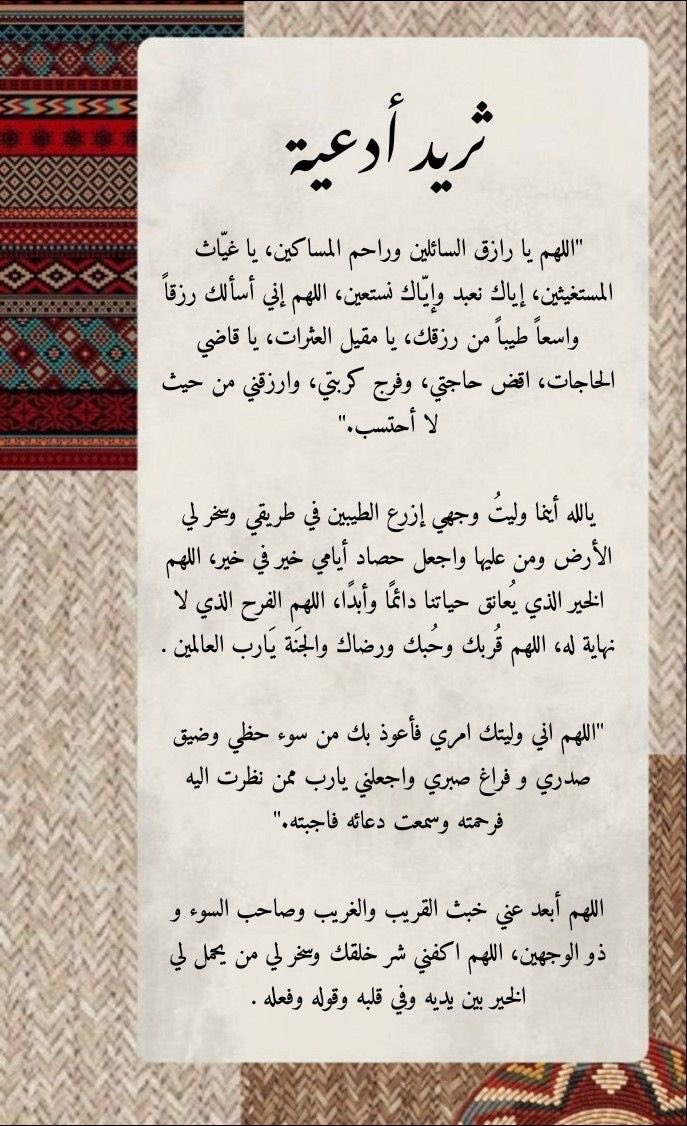 ثريد أدعية
"اللهم يا رازق السائلين وراحم المساكين، يا غيّاث
المستغيثين، إياك نعبد وإيّاك نستعين، اللهم إني أسألك رزقاً
واسعاً طيباً من رزقك، يا مقيل العثرات، يا قاضي
الحاجات، اقض حاجتي، وفرج كربتي، وارزقني من حيث
لا أحتسب."
يالله أينما وليتُ وجهي إزرع الطيبين في طريقي وسخر لي
الأرض ومن عليها واجعل حصاد أيامي خير في خير، اللهم
الخير الذي يُعانق حياتنا دائمًا وأبدًا، اللهم الفرح الذي لا
نهاية له، اللهم قُربك وحُبك ورضاك والجنَة يَارب العالمين .
"اللهم اني وليتك امري فأعوذ بك من سوء حظي وضيق
صدري و فراغ صبري واجعلني يارب ممن نظرت اليه
فرحمته وسمعت دعائه فاجبته."
اللهم أبعد عني خبث القريب والغريب وصاحب السوء و
ذو الوجهين، اللهم اكفني شر خلقك وسخر لي من يحمل لي
الخير بين يديه وفي قلبه وقوله وفعله .